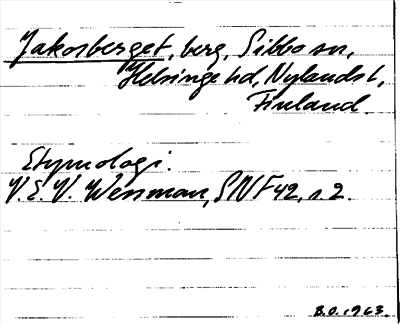 Jakosberget, berg, Sibbo sn,
Helsinge hd, Nylands l,
Finland.
Etymologi.
V.E.V. Wessman, SNF 42, s. 2.
B.O. 1963.